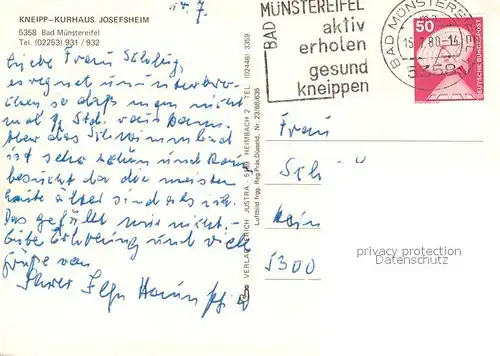 KNEIPP-KURHAUS JOSEFSHEIM
5358 Bad Münstereifel
Tel. (02253) 931 / 932
14. 7.
Liebe Frau
es regnet ununterbro-
chen so daß man nicht
mal ½ Std. raus kann.
Aber das Schwimmbad
ist sehr schön und kaum
besucht da die meisten
Leute älter sind als ich.
Das gefällt mir nicht.
Gute Erholung und viele
Grüße von
Ihrer
VERLAG ERICH JUSTRA · 5169 HEIMBACH 2 TEL. (02446) 3359
Luftbild frgg. Reg.Präs.Düsseld. Nr. 23/68/635
BAD MÜNSTEREIFEL
aktiv
erholen
gesund
kneippen
BAD MÜNSTEREIFEL
15.7.80-14
5358
50
DEUTSCHE BUNDESPOST
Frau
Sch
Köln
5300
privacy protection
Datenschutz